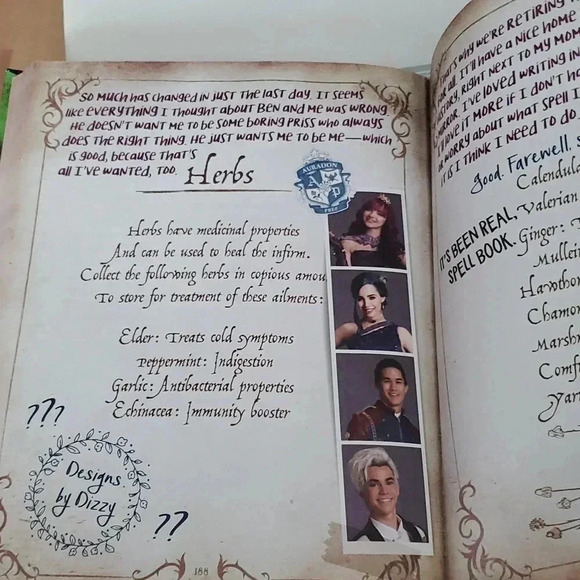 SO MUCH HAS CHANGED IN JUST THE LAST DAY. IT SEEMS
LIKE EVERYTHING I THOUGHT ABOUT BEN AND ME WAS WRONG.
HE DOESN'T WANT ME TO BE SOME BORING PRISS WHO ALWAYS
DOES THE RIGHT THING. HE JUST WANTS ME TO BE ME—WHICH
IS GOOD, BECAUSE THAT'S
ALL I'VE WANTED, TOO.
Herbs
AURADON
A P
PREP
Herbs have medicinal properties
And can be used to heal the infirm.
Collect the following herbs in copious amou
To store for treatment of these ailments:
Elder: Treats cold symptoms
Peppermint: Indigestion
Garlic: Antibacterial properties
Echinacea: Immunity booster
???
Designs
by Dizzy
??
188
THAT'S WHY WE'RE RETIRING
ALL. IT'LL HAVE A NICE HOME
RIGHT NEXT TO MY MOM
I'VE LOVED WRITING IN
IT MORE IF I DON'T HA
WORRY ABOUT WHAT SPELL I
IS I THINK I NEED TO DO.
GOOD. FAREWELL, S
IT'S BEEN REAL,
SPELL BOOK.
Calendula
Valerian
Ginger: T
Mullei
Hawthor
Chamo
Marshm
Comf
Yar